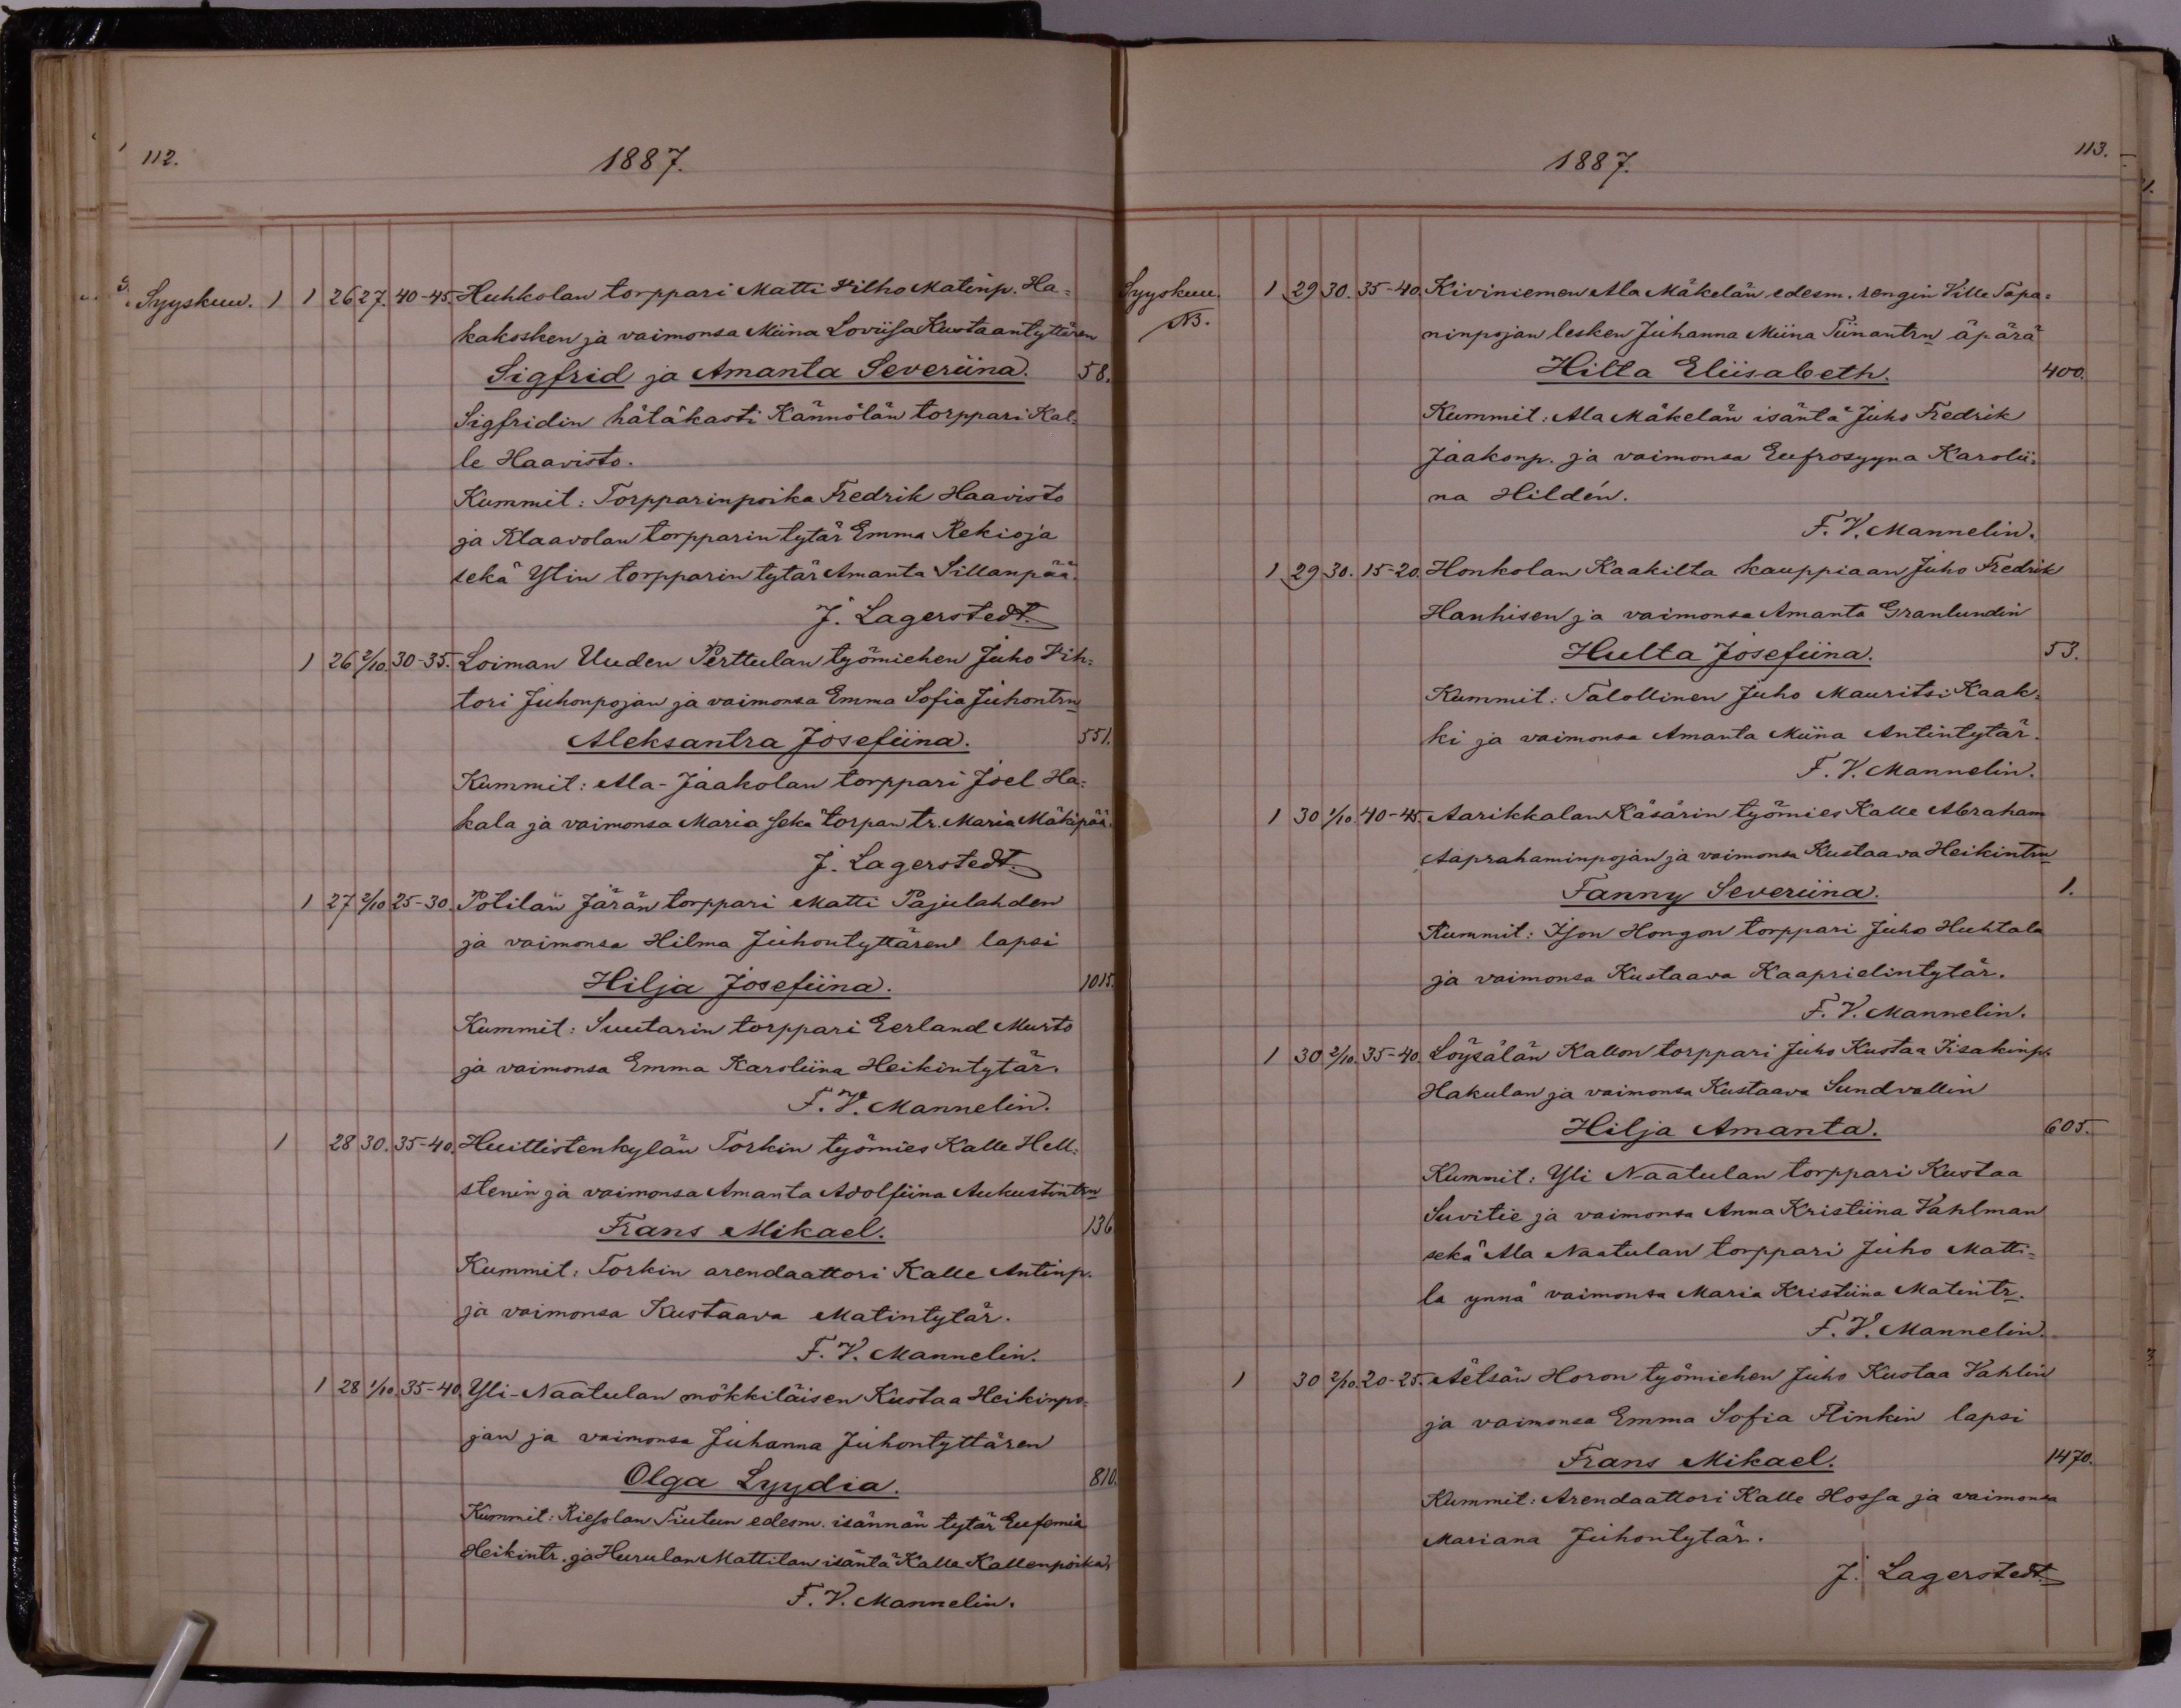 112.
1887.
Syyskuu. 1 1 26 27. 40-45. Huhkolan torppari Matti Vilho Matinp. Ha=
kakosken ja vaimonsa Miina Loviisa Kustaantyttären
Sigfrid ja Amanta Severiina. 58.
Sigfridin hätäkasti Kännölän torppari Kal=
le Haavisto.
Kummit: Torpparinpoika Fredrik Haavisto
ja Klaavolan torpparin tytär Emma Rekioja
sekä Ylin torpparin tytär Amanta Sillanpää.
J. Lagerstedt.
1 26 2/10. 30-35. Loiman Uuden Perttulan työmiehen Juho Vih=
tori Juhonpojan ja vaimonsa Emma Sofia Juhontrn
Aleksantra Josefiina. 551.
Kummit: Ala-Jaakolan torppari Joel Ha=
kala ja vaimonsa Maria sekä torpan tr. Maria Mäkipää.
J. Lagerstedt.
1 27 2/10 25-30. Potilän Järän torppari Matti Pajulahden
ja vaimonsa Hilma Juhontyttären lapsi
Hilja Josefiina. 1015.
Kummit: Suutarin torppari Eerland Murto
ja vaimonsa Emma Karoliina Heikintytär.
F. V. Mannelin.
1 28 30. 35-40. Huittistenkylän Torkin työmies Kalle Hell=
stenin ja vaimonsa Amanta Adolfiina Aukustintrn
Frans Mikael. 136
Kummit: Torkin arendaattori Kalle Antinp.
ja vaimonsa Kustaava Matintytär.
F. V. Mannelin.
1 28 1/10. 35-40. Yli-Naatulan mökkiläisen Kustaa Heikinpo=
jan ja vaimonsa Juhanna Juhontyttären
Olga Lyydia. 810.
Kummit: Riesolan Tiutun edesm. isännän tytär Eufemia
Heikintr. ja Hurulan Mattilan isäntä Kalle Kallenpoika.
F. V. Mannelin.
113.
1887.
Syyskuu. 1 29 30. 35-40. Kiviniemen Ala Mäkelän edesm. rengin Ville Tapa=
NB.
ninpojan lesken Juhanna Miina Tiinantrn äpärä
Hilta Eliisabeth. 400.
Kummit: Ala Mäkelän isäntä Juho Fredrik
Jaakonp. ja vaimonsa Eufrosyyna Karolii=
na Hildén.
F. V. Mannelin.
1 29 30. 15-20. Honkolan Kaakilta kauppiaan Juho Fredrik
Hanhisen ja vaimonsa Amanta Granlundin
Hulta Josefiina. 53.
Kummit: Talollinen Juho Mauritsi Kaak=
ki ja vaimonsa Amanta Miina Antintytär.
F. V. Mannelin.
1 30 1/10. 40-45. Aarikkalan Käsärin työmies Kalle Abraham
Aaprahaminpojan ja vaimonsa Kustaava Heikintrn
Fanny Severiina. 1.
Kummit: Ison Hongon torppari Juho Huhtala
ja vaimonsa Kustaava Kaaprielintytär.
F. V. Mannelin.
1 30 2/10. 35-40. Löysälän Kallon torppari Juho Kustaa Iisakinp.
Hakulan ja vaimonsa Kustaava Sundvallin
Hilja Amanta. 605.
Kummit: Yli Naatulan torppari Kustaa
Suvitie ja vaimonsa Anna Kristiina Vahlman
sekä Ala Naatulan torppari Juho Matti=
la ynnä vaimonsa Maria Kristiina Matintr.
F. V. Mannelin.
1 30 2/10. 20-25. Äetsän Horon työmiehen Juho Kustaa Vahlin
ja vaimonsa Emma Sofia Flinkin lapsi
Frans Mikael. 1470.
Kummit: Arendaattori Kalle Hossa ja vaimonsa
Mariana Juhontytär.
J. Lagerstedt.